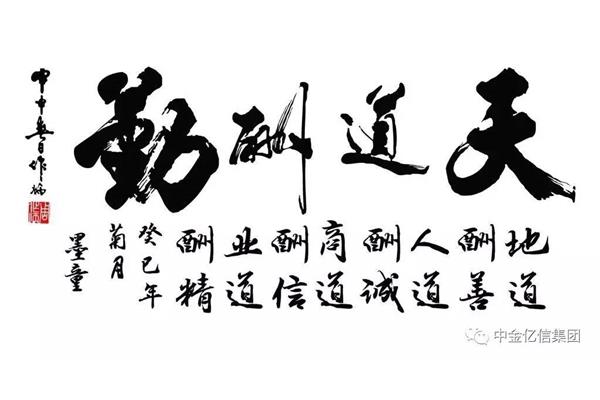 天道酬勤
地道
酬善
人道
酬诚
商道
酬信
业道
酬精
癸巳年
菊月
墨童
中金亿信集团